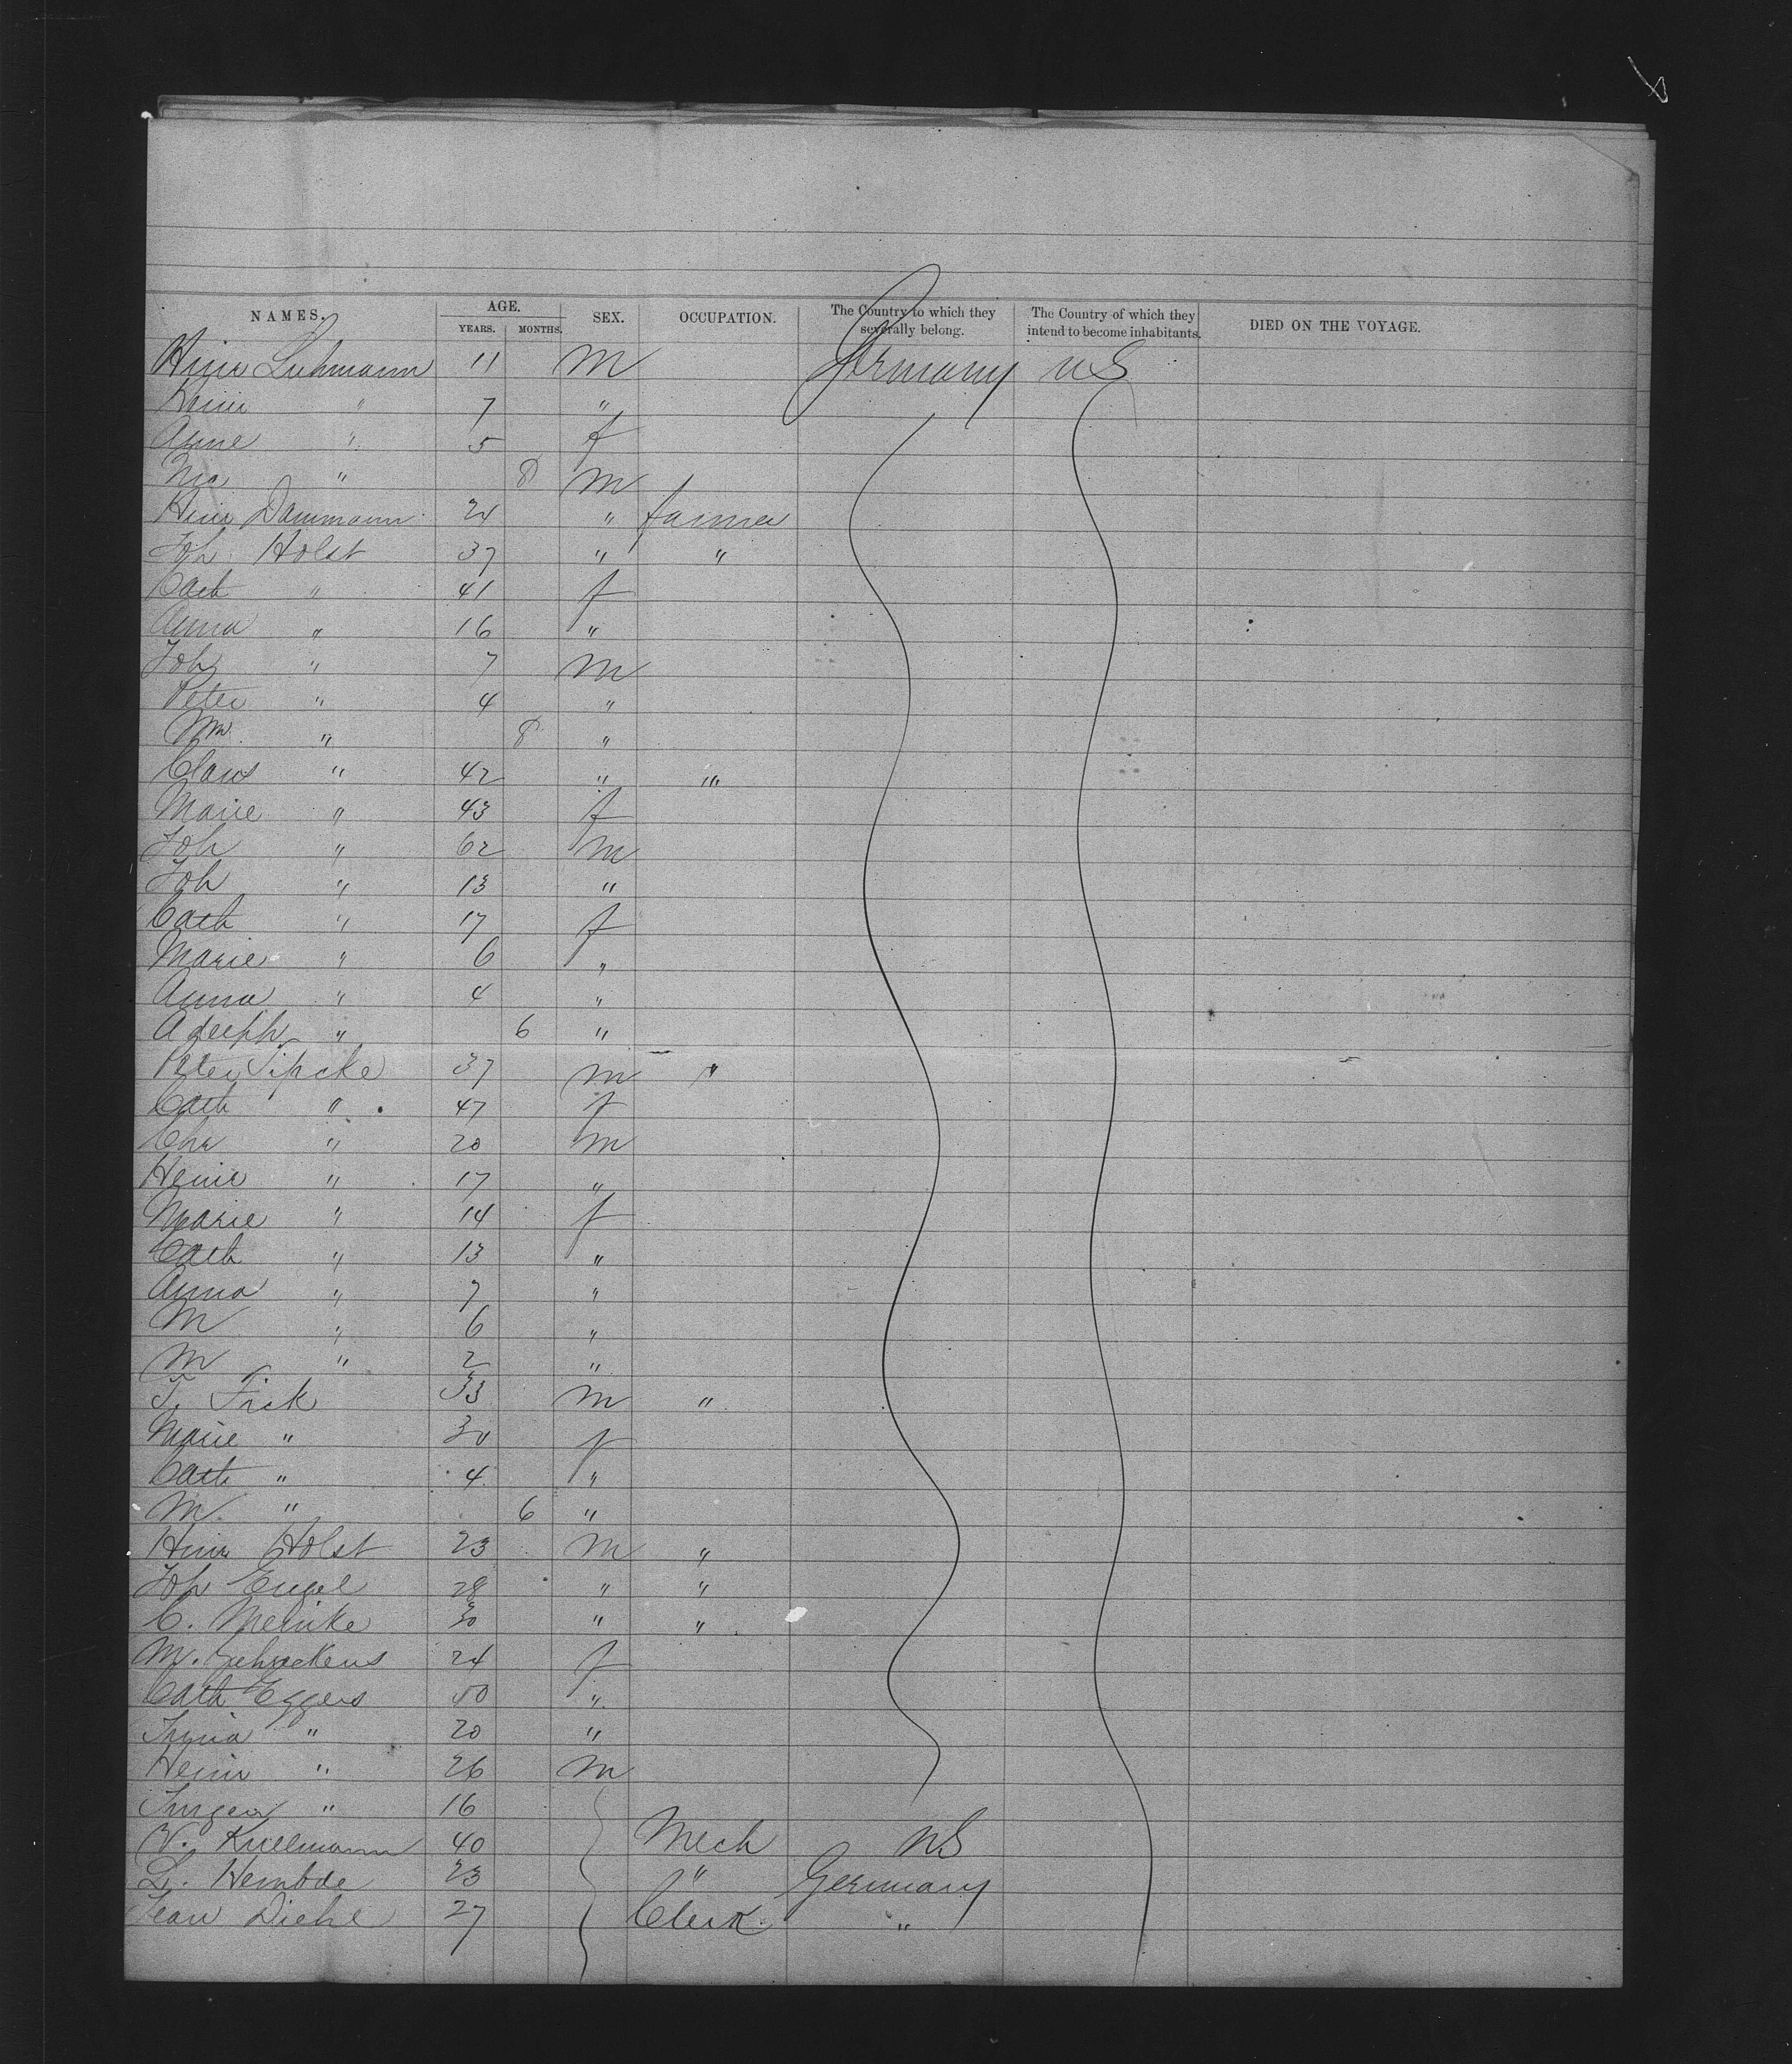 NAMES. AGE. SEX. OCCUPATION. The Country to which they severally belong. The Country of which they intend to become inhabitants. DIED ON THE VOYAGE.
YEARS. MONTHS.
Hinr Luhmann 11 M Germany US
Heinr " 7 "
Anne " 5 f
Nic " 8 M
Hinr Dammann 24 " farmer
Joh Holst 37 " "
Cath " 41 f
Anna " 16 "
Joh " 7 M
Peter " 4 "
Wm " 8 "
Claus " 42 " "
Marie " 43 f
Joh " 62 m
Joh " 13 "
Cath " 17 f
Marie " 6 "
Anna " 4 "
Adolph " 6 "
Peter 37 m "
Cath " 47 f
Chr " 20 m
Heinr " 17 "
Marie " 14 f
Cath " 13 "
Anna " 7 "
M " 6 "
M " 2 "
J. Fick 33 m "
Marie " 30 f
Cath " 4 "
M. " 6 "
Hinr Holst 23 M "
Joh Engel 28 " "
C. Meinke 30 " "
M. 24 f
Cath Eggers 50 "
" 20 "
Heinr " 26 m
Jurgen " 16
Krullmann 40 Mech US
L. Hembde 23 " Germany
Jean Diehl 27 Clerk "